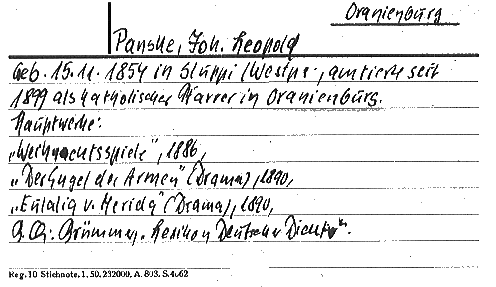 Oranienburg
Panske, Joh. Leopold
Geb. 15.11.1854 in Sluppi (Westpr., amtierte seit
1899 als katholischer Pfarrer in Oranienburg.
Hauptwerke:
„Weihnachtsspiele", 1886,
„Der Engel der Armen" (Drama), 1890,
„Eulalia v. Merida" (Drama), 1890,
Brümmer, Lexikon Deutscher Dichter.
Reg. 10 Stichnote. 1, 50. 232000. A. 803. S. 4.62